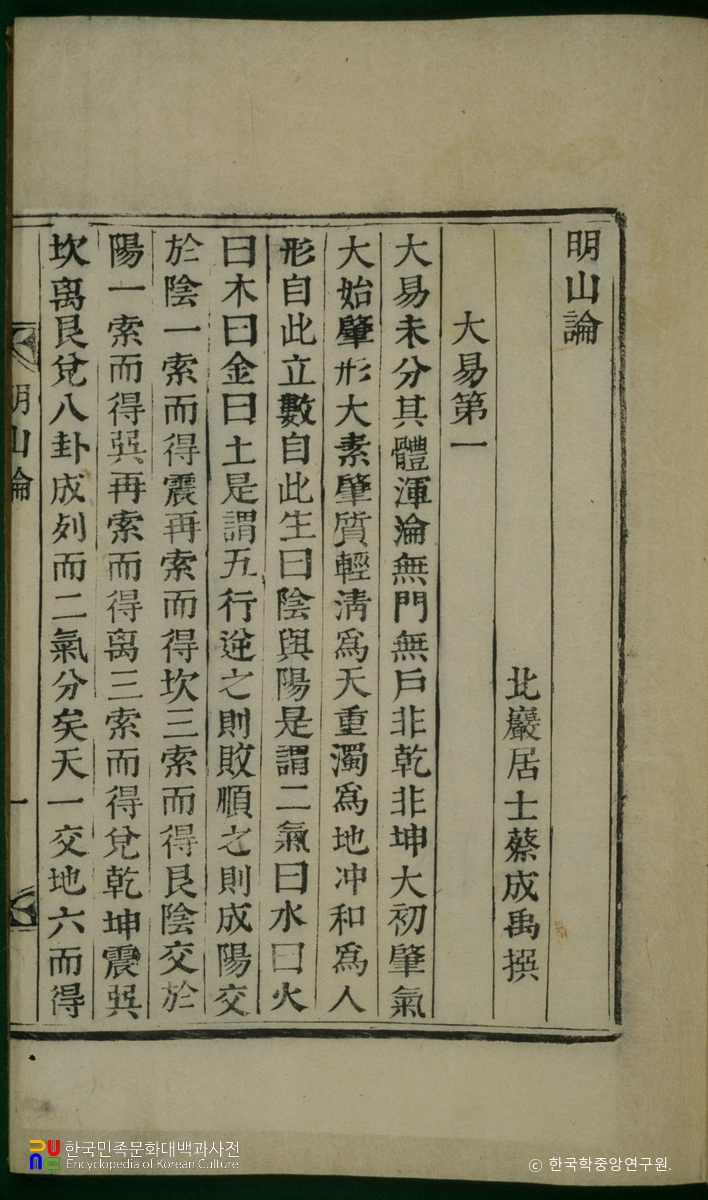 明山論
北巖居士蔡成禹撰
大易第一
大易未分其體渾淪無門無戶非乾非坤大初肇氣
大始肇形大素肇質輕淸爲天重濁爲地冲和爲人
形自此立數自此生曰陰與陽是謂二氣曰水曰火
曰木曰金曰土是謂五行逆之則敗順之則成陽交
於陰一索而得震再索而得坎三索而得艮陰交於
陽一索而得巽再索而得离三索而得兌乾坤震巽
坎离艮兌八卦成列而二氣分矣天一交地六而得
明山論
一
한국민족문화대백과사전
Encyclopedia of Korean Culture
ⓒ 한국학중앙연구원.